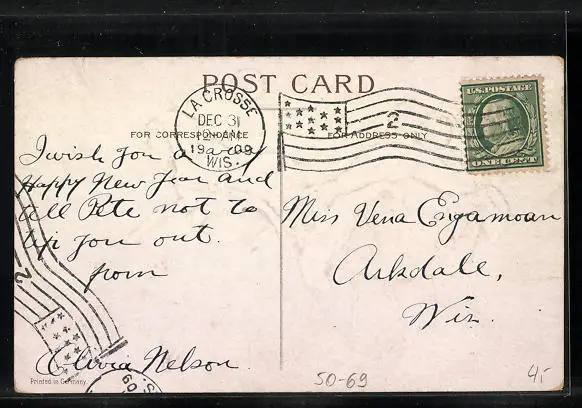 POST CARD
LA CROSSE
DEC 31
1909
WIS.
2
U.S. POSTAGE
ONE CENT
FOR CORRESPONDENCE
FOR ADDRESS ONLY
I wish you a
Happy New Year and
tell Pete not to
tip you out.
from
Olivia Nelson.
Miss Vena Engamoan
Arkdale,
Wis.
2
Printed in Germany.
09
50-69
4,-